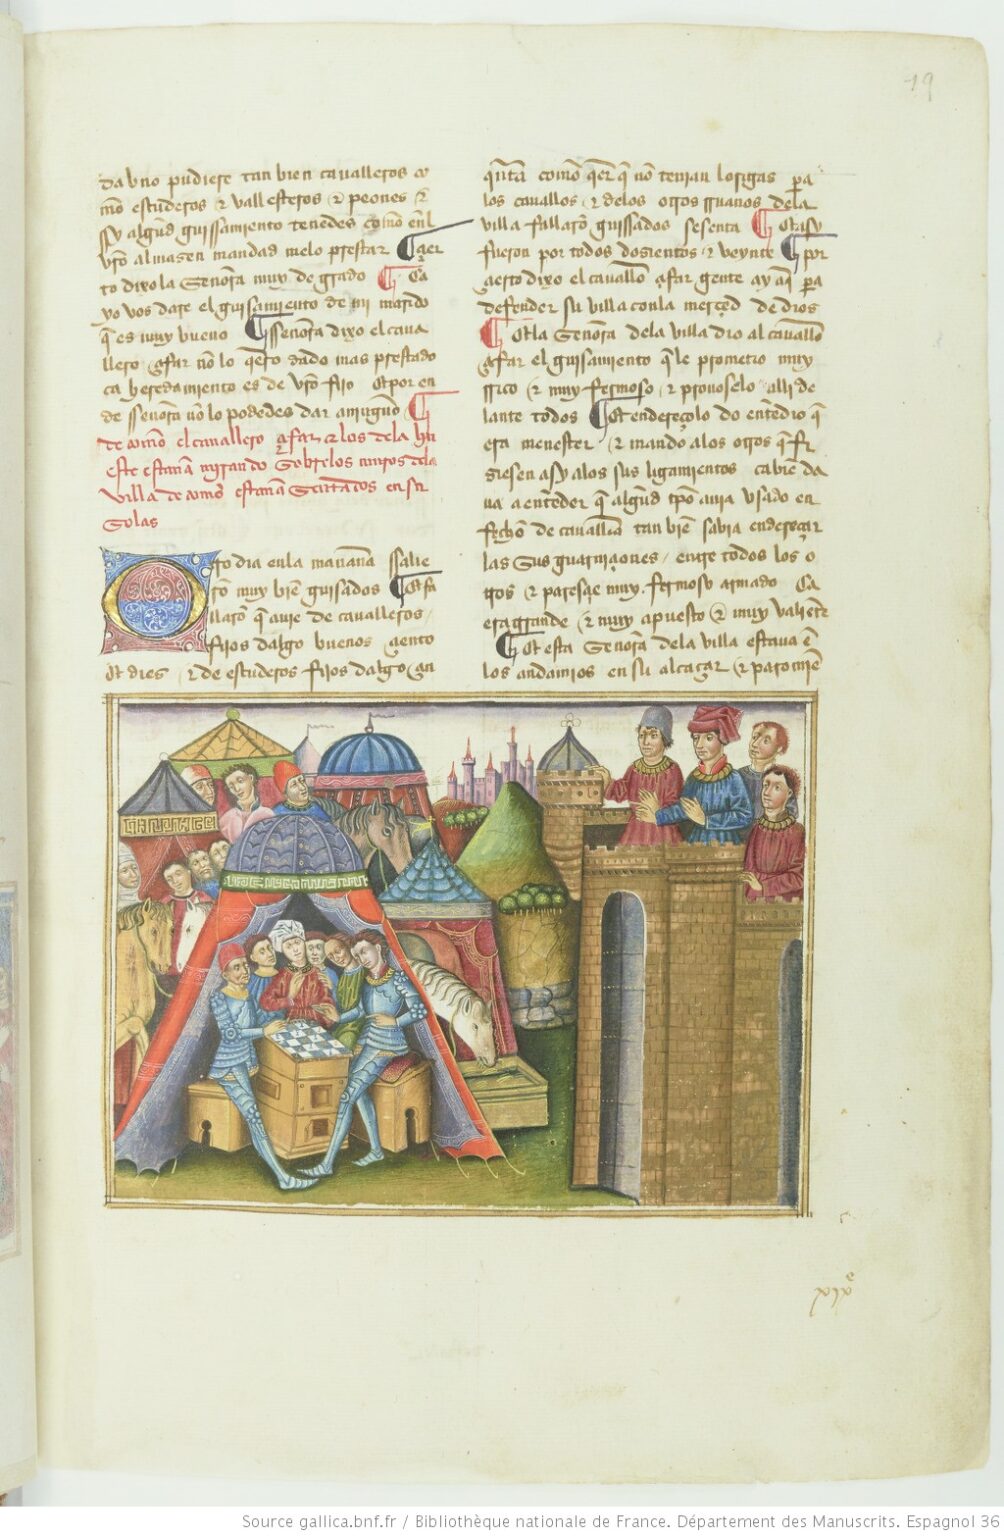 19
da vno pudiese tan bien caualleros co
mo escuderos & vallesteros & peones &
ssy algund guissamiento tenedes como en el
vr̃o almasen mandad melo prestar ¶ çier
to dixo la Señora muy de grado ¶ Ca
yo vos dare el guisamiento de mi marido
q̃ es muy bueno ¶ sseñora dixo el caua
llero zifar nõ lo q̃ero dado mas prestado
ca heredamiento es de vr̃o fijo Et por en
de sseñora nõ lo podedes dar a ninguno ¶
de cõmo el cauallero zifar & los dela hu
este estauã mirando Sobre los muros dela
villa de cõmo estauã Sentados en su
Solas
Otro dia en la mañana ssalie
rõ muy biẽ guisados ¶ Et fa
llarõ q̃ auie de caualleros
fijos dalgo buenos çiento
Et dies & de escuderos fijos dalgo çin
q̃nta como q̃er q̃ nõ tenian lorigas pa
los cauallos & delos otros rruanos dela
villa fallarõ guissados sesenta ¶ Et asy
fueron por todos dosientos & veynte ¶ por
çierto dixo el cauallo zifar gente ay aq̃ pa
defender su villa con la merçed de dios
¶ Et la Señora dela villa dio al cauallo
zifar el guisamiento q̃ le prometio muy
rrico & muy fermoso & prouoselo alli de
lante todos ¶ Et endereçolo do entẽdio q̃
era menester & mando alos otros q̃ fi
ziesen asy alos sus ligamientos ca biẽ da
ua a entẽder q̃ algũd tpõ auia vsado en
fechõ de cauallia tan biẽ sabia endereçar
las Sus guarniçiones entre todos los o
tros & paresçie muy fermoso armado Ca
era grande & muy apuesto & muy valiẽte
¶ Et esta Señora dela villa estaua ẽ
los andamios en su alcaçar & paro miẽ
xixe
Source gallica.bnf.fr / Bibliothèque nationale de France. Département des Manuscrits. Espagnol 36